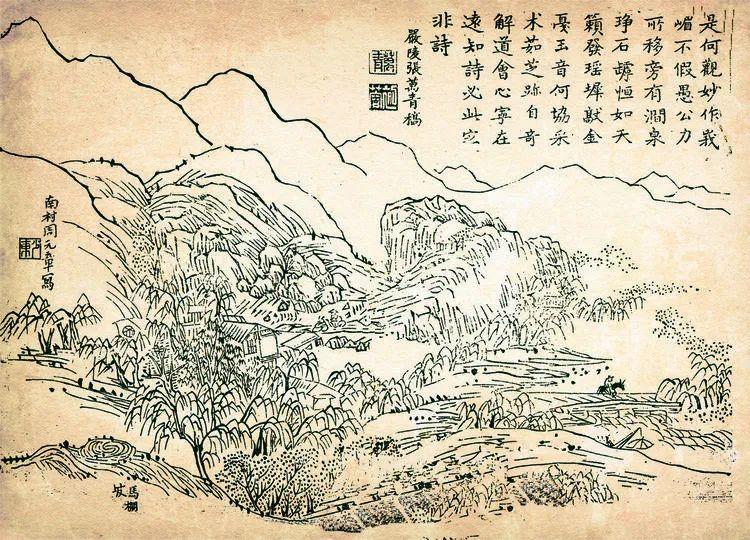 是何觀妙作峩
嵋不假愚公力
所移旁有澗泉
琤石罅恒如天
籟發瑤墀金
戛玉音何協采
朮茹芝跡自奇
解道會心寧在
遠知詩必此定
非詩
嚴陵張萬青槁
南村周元章寫
馬棚
坡